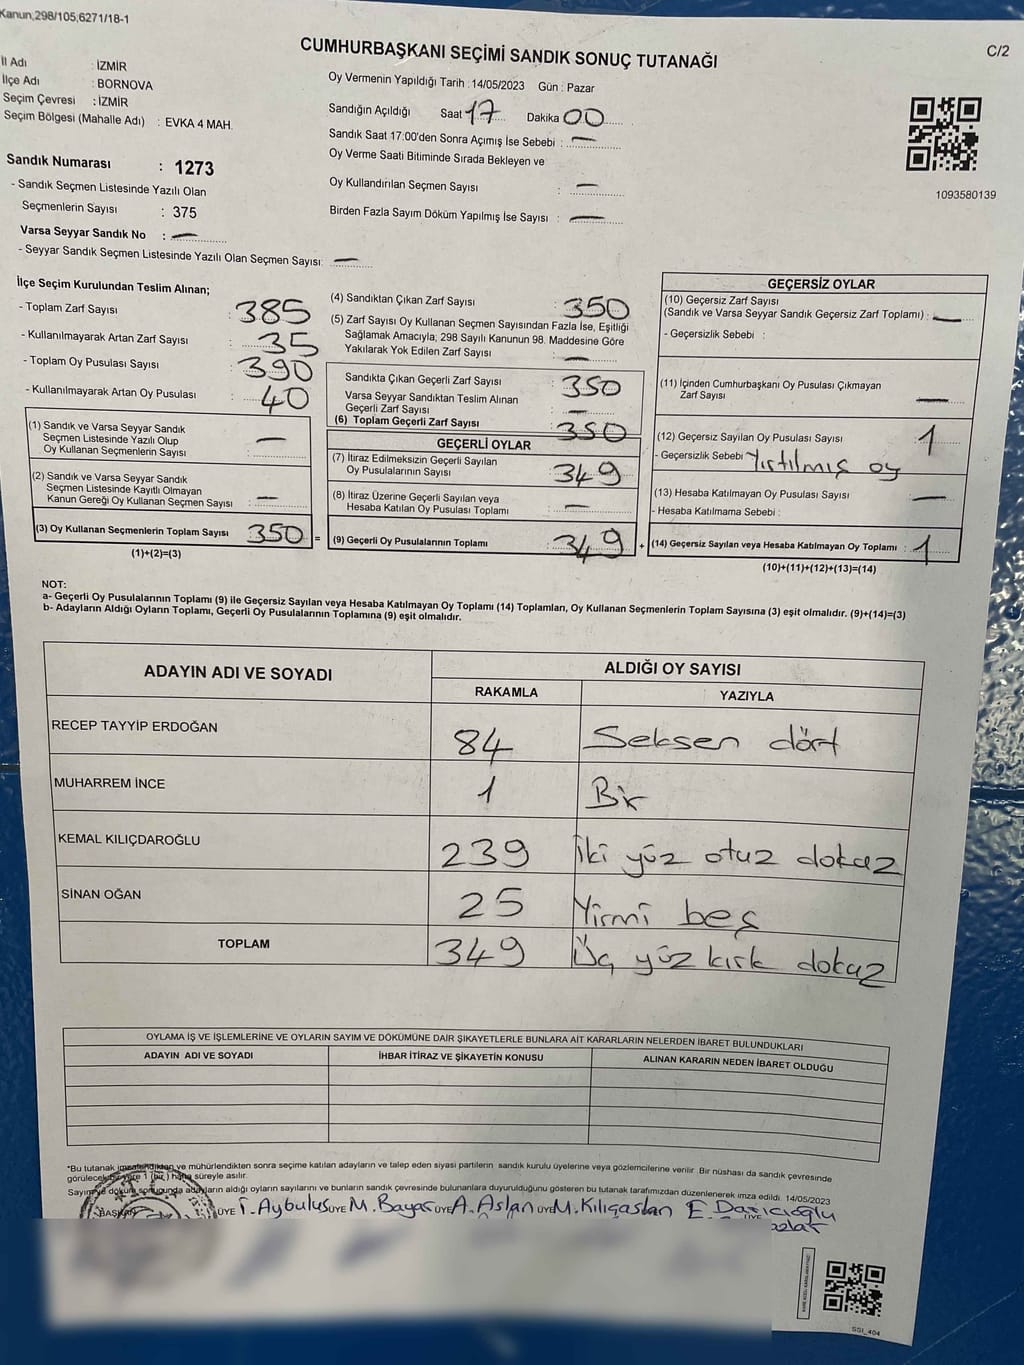 Kanun,298/105,6271/18-1
C/2
CUMHURBAŞKANI SEÇİMİ SANDIK SONUÇ TUTANAĞI
İl Adı : İZMİR
İlçe Adı : BORNOVA
Seçim Çevresi : İZMİR
Seçim Bölgesi (Mahalle Adı) : EVKA 4 MAH.
Sandık Numarası : 1273
- Sandık Seçmen Listesinde Yazılı Olan
Seçmenlerin Sayısı : 375
Varsa Seyyar Sandık No : —
- Seyyar Sandık Seçmen Listesinde Yazılı Olan Seçmen Sayısı: —
Oy Vermenin Yapıldığı Tarih : 14/05/2023 Gün : Pazar
Sandığın Açıldığı Saat 17 Dakika 00
Sandık Saat 17:00'den Sonra Açımış İse Sebebi : —
Oy Verme Saati Bitiminde Sırada Bekleyen ve
Oy Kullandırılan Seçmen Sayısı : —
Birden Fazla Sayım Döküm Yapılmış İse Sayısı : —
1093580139
İlçe Seçim Kurulundan Teslim Alınan;
- Toplam Zarf Sayısı : 385
- Kullanılmayarak Artan Zarf Sayısı : 35
- Toplam Oy Pusulası Sayısı : 390
- Kullanılmayarak Artan Oy Pusulası : 40
(1) Sandık ve Varsa Seyyar Sandık
Seçmen Listesinde Yazılı Olup
Oy Kullanan Seçmenlerin Sayısı : —
(2) Sandık ve Varsa Seyyar Sandık
Seçmen Listesinde Kayıtlı Olmayan
Kanun Gereği Oy Kullanan Seçmen Sayısı : —
(3) Oy Kullanan Seçmenlerin Toplam Sayısı 350 =
(1)+(2)=(3)
(4) Sandıktan Çıkan Zarf Sayısı : 350
(5) Zarf Sayısı Oy Kullanan Seçmen Sayısından Fazla İse, Eşitliği
Sağlamak Amacıyla; 298 Sayılı Kanunun 98. Maddesine Göre
Yakılarak Yok Edilen Zarf Sayısı : —
Sandıkta Çıkan Geçerli Zarf Sayısı : 350
Varsa Seyyar Sandıktan Teslim Alınan
Geçerli Zarf Sayısı : —
(6) Toplam Geçerli Zarf Sayısı : 350
GEÇERLİ OYLAR
(7) İtiraz Edilmeksizin Geçerli Sayılan
Oy Pusulalarının Sayısı : 349
(8) İtiraz Üzerine Geçerli Sayılan veya
Hesaba Katılan Oy Pusulası Toplamı : —
(9) Geçerli Oy Pusulalarının Toplamı : 349 +
GEÇERSİZ OYLAR
(10) Geçersiz Zarf Sayısı
(Sandık ve Varsa Seyyar Sandık Geçersiz Zarf Toplamı) : —
- Geçersizlik Sebebi :
(11) İçinden Cumhurbaşkanı Oy Pusulası Çıkmayan
Zarf Sayısı : —
(12) Geçersiz Sayılan Oy Pusulası Sayısı : 1
- Geçersizlik Sebebi Yırtılmış oy
(13) Hesaba Katılmayan Oy Pusulası Sayısı : —
- Hesaba Katılmama Sebebi :
(14) Geçersiz Sayılan veya Hesaba Katılmayan Oy Toplamı : 1
(10)+(11)+(12)+(13)=(14)
NOT:
a- Geçerli Oy Pusulalarının Toplamı (9) ile Geçersiz Sayılan veya Hesaba Katılmayan Oy Toplamı (14) Toplamları, Oy Kullanan Seçmenlerin Toplam Sayısına (3) eşit olmalıdır. (9)+(14)=(3)
b- Adayların Aldığı Oyların Toplamı, Geçerli Oy Pusulalarının Toplamına (9) eşit olmalıdır.
ADAYIN ADI VE SOYADI ALDIĞI OY SAYISI
RAKAMLA YAZIYLA
RECEP TAYYİP ERDOĞAN 84 Seksen dört
MUHARREM İNCE 1 Bir
KEMAL KILIÇDAROĞLU 239 İki yüz otuz dokuz
SİNAN OĞAN 25 Yirmi beş
TOPLAM 349 Üç yüz kırk dokuz
OYLAMA İŞ VE İŞLEMLERİNE VE OYLARIN SAYIM VE DÖKÜMÜNE DAİR ŞİKAYETLERLE BUNLARA AİT KARARLARIN NELERDEN İBARET BULUNDUKLARI
ADAYIN ADI VE SOYADI İHBAR İTİRAZ VE ŞİKAYETİN KONUSU ALINAN KARARIN NEDEN İBARET OLDUĞU
*Bu tutanak imzalandıktan ve mühürlendikten sonra seçime katılan adayların ve talep eden siyasi partilerin sandık kurulu üyelerine veya gözlemcilerine verilir. Bir nüshası da sandık çevresinde
görülecek bir yere 1 (bir) hafta süreyle asılır.
Sayım ve döküm sonucunda adayların aldığı oyların sayılarını ve bunların sandık çevresinde bulunanlara duyurulduğunu gösteren bu tutanak tarafımızdan düzenlenerek imza edildi. 14/05/2023
BAŞKAN ÜYE T. Aybulus ÜYE M. Bayar ÜYE A. Aslan ÜYE M. Kılıçaslan E. Dazıcıoğlu
ÜYE
SSİ_404